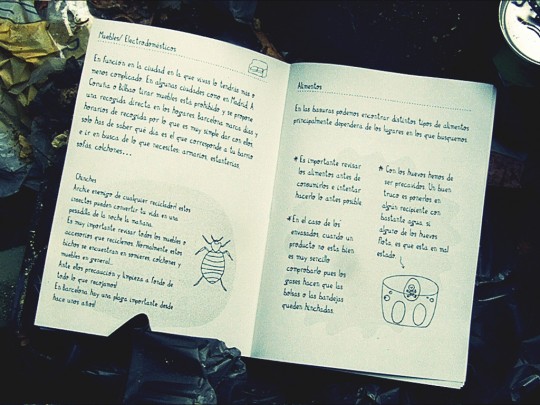 Muebles/ Electrodomésticos
En función en la ciudad en la que vivas lo tendrás mas o
menos complicado. En algunas ciudades como en Madrid, A
Coruña o Bilbao tirar muebles esta prohibido y se propone
una recogida directa en los hogares. Barcelona marca días y
horarios de recogida por lo que es muy simple dar con ellos
solo has de saber qué día es el que corresponde a tu barrio
e ir en busca de lo que necesites: armarios, estanterías,
sofás, colchones...
Chinches
Archie enemigo de cualquier reciclador! estos
insectos pueden convertir tu vida en una
pesadilla de la noche la mañana.
Es muy importante revisar todos los muebles o
accesorios que recicleres. Normalmente estos
bichos se encuentran en somieres, colchones y
muebles en general...
Ante otras precaución y limpieza a fondo de
todo lo que recojamos!
En Barcelona hay una plaga importante desde
hace unos años!
Alimentos
En las basuras podemos encontrar distintos tipos de alimentos
principalmente dependera de los lugares en los que busquemos
* Es importante revisar
los alimentos antes de
consumirlos e intentar
hacerlo lo antes posible
* En el caso de los
envasados cuando un
producto no esta bien
es muy sencillo
comprobarlo pues los
gases hacen que las
bolsas o las bandejas
queden hinchadas
* Con los huevos hemos de
ser precavidos. Un buen
truco es ponerlos en
algún recipiente con
bastante agua si
alguno de los huevos
flota, es que esta en mal
estado